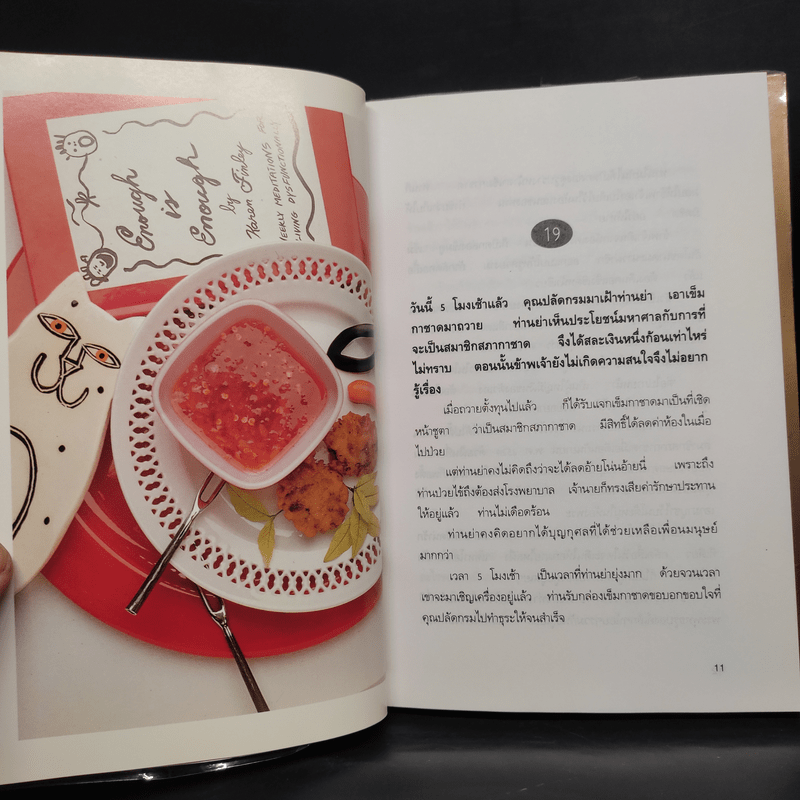 Enough
is
Enough
by
Karen Finley
WEEKLY MEDITATIONS FOR
LIVING DYSFUNCTIONALLY
19
วันนี้ 5 โมงเช้าแล้ว คุณปลัดกรมมาเฝ้าท่านย่า เอาเข็ม
กาชาดมาถวาย ท่านย่าเห็นประโยชน์มหาศาลกับการที่
จะเป็นสมาชิกสภากาชาด จึงได้สละเงินหนึ่งก้อนเท่าไหร่
ไม่ทราบ ตอนนั้นข้าพเจ้ายังไม่เกิดความสนใจจึงไม่อยาก
รู้เรื่อง
เมื่อถวายตั้งทุนไปแล้ว ก็ได้รับแจกเข็มกาชาดมาเป็นที่เชิด
หน้าชูตา ว่าเป็นสมาชิกสภากาชาด มีสิทธิ์ได้ลดค่าห้องในเมื่อ
ไปป่วย
แต่ท่านย่าคงไม่คิดถึงว่าจะได้ลดอ้ายโน่นอ้ายนี่ เพราะถึง
ท่านป่วยไข้ถึงต้องส่งโรงพยาบาล เจ้านายก็ทรงเสียค่ารักษาประทาน
ให้อยู่แล้ว ท่านไม่เดือดร้อน
ท่านย่าคงคิดอยากได้บุญกุศลที่ได้ช่วยเหลือเพื่อนมนุษย์
มากกว่า
เวลา 5 โมงเช้า เป็นเวลาที่ท่านย่ายุ่งมาก ด้วยจวนเวลา
เขาจะมาเชิญเครื่องอยู่แล้ว ท่านรับกล่องเข็มกาชาดขอบอกขอบใจที่
คุณปลัดกรมไปทำธุระให้จนสำเร็จ
11